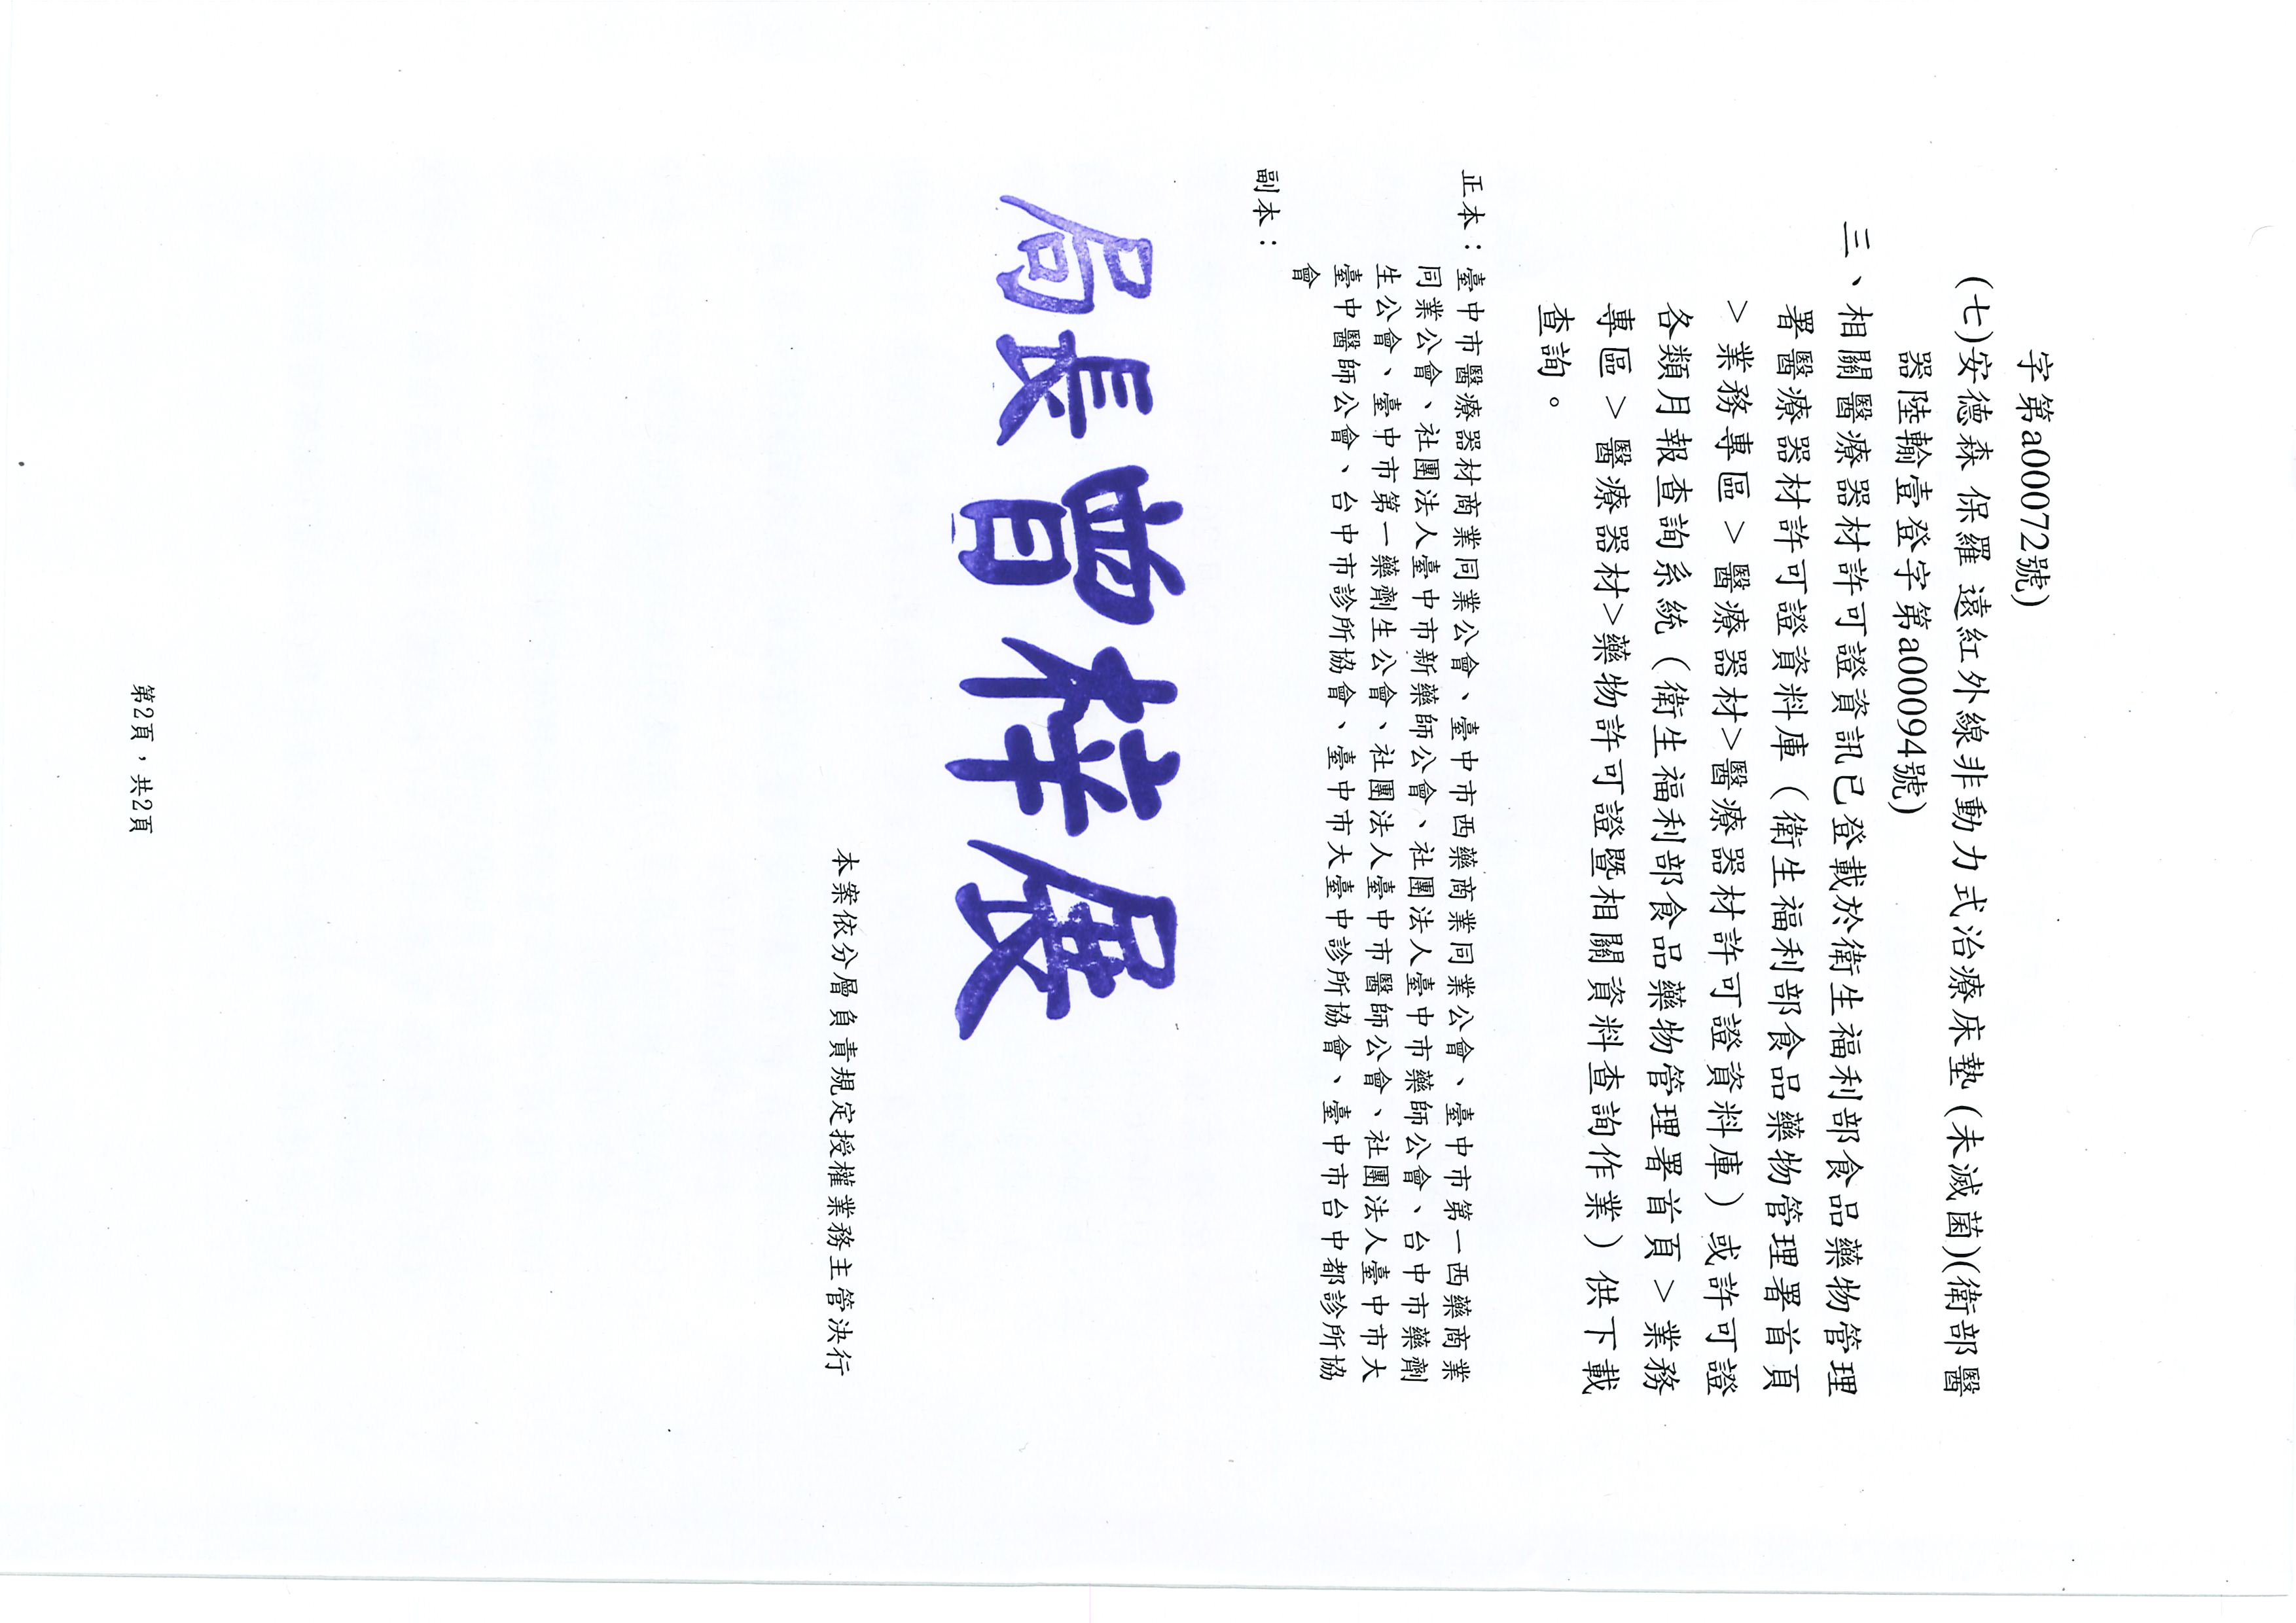 字第a00072號)
(七)安德森 保羅 遠紅外線非動力式治療床墊 (未滅菌)(衛部醫
器陸輸壹登字第a00094號)
三、相關醫療器材許可證資訊已登載於衛生福利部食品藥物管理
署醫療器材許可證資料庫（衛生福利部食品藥物管理署首頁
>業務專區 > 醫療器材>醫療器材許可證資料庫）或許可證
各類月報查詢系統（衛生福利部食品藥物管理署首頁 > 業務
專區 > 醫療器材>藥物許可證暨相關資料查詢作業）供下載
查詢。
正本：臺中市醫療器材商業同業公會、臺中市西藥商業同業公會、臺中市第一西藥商業
同業公會、社團法人臺中市新藥師公會、社團法人臺中市藥師公會、台中市藥劑
生公會、臺中市第一藥劑生公會、社團法人臺中市醫師公會、社團法人臺中市大
臺中醫師公會、台中市診所協會、臺中市大臺中診所協會、臺中市台中都診所協
會
副本：
局長曾梓展
本案依分層負責規定授權業務主管決行
第2頁，共2頁